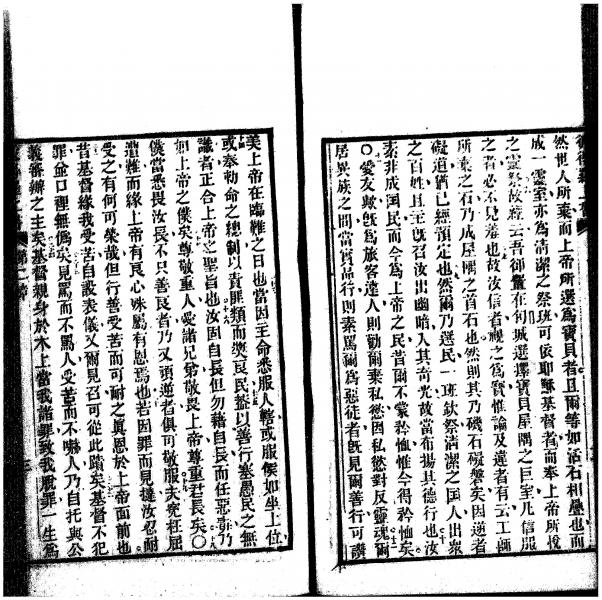 然世人所棄而上帝所選爲寶貝者且爾等如活石相壘也而
成一靈室亦爲清潔之祭班可依耶穌基督者而奉上帝所悅
之靈祭故經云吾卻置在郇城選擇寶貝屋隅之巨室凡信服
之者必不見羞也故汝信者視之爲寶惟論及違者有云工師
所棄之石乃成屋隅之首石也然則其乃磯石礙磐矣因逆者
礙道猶已經預定也然爾乃選民一班欽祭清潔之國人出衆
之百姓且主旣召汝出幽暗入其奇光故當布揚其德行也汝
素非成國民而今爲上帝之民昔爾不蒙矜恤惟今得矜恤矣
〇愛友歟旣爲旅客達人則勸爾棄私慾因私慾對反靈魂爾
居異族之間當實品行則素罵爾爲惡徒者旣見爾善行可讚
美上帝在臨難之日也當因主命悉服人轄或服侯如坐上位
或奉勅命之總制以責罪類而奬良民葢以善行塞愚民之無
識者正合上帝之聖旨也汝固自長但勿藉自長而任惡乃
如上帝之僕矣尊敬重人愛諸兄弟敬畏上帝尊重君長矣〇
僕當悉畏汝長不只善良者乃又頭逆者俱可敬服夫究枉屈
遭難而緣上帝有良心姝屬有恩焉也若因罪而見撻汝忍耐
受之有何可榮哉但行善受苦而可耐之眞恩於上帝面前也
昔基督緣我受苦自設表儀又爾見召可從此蹟矣基督不犯
罪並口裡無僞矣見罵而不罵人受苦而不嚇人乃自托與公
義審辦之主矣基督親身於木上當我諸罪致我脫罪一生爲
第二章